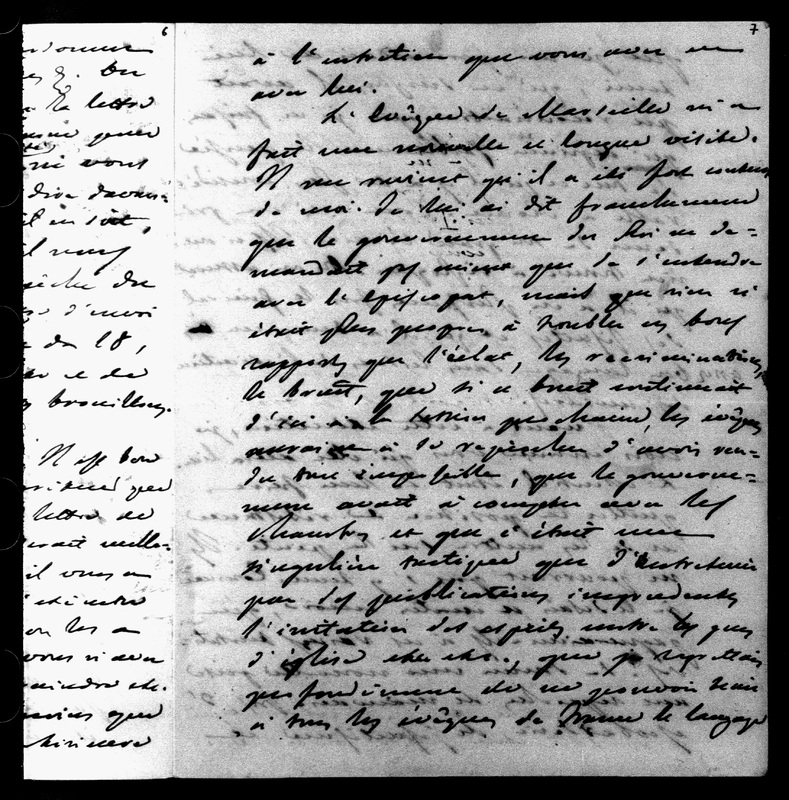 6
donner
la lettre
vous
dire davan-
il en soit,
d'ici
du 18,
brouillons.
Il est bon
que
lettre de
serait utile-
il vous a
on les a
vous n'avez
que
7
à l'entretien que vous avez eu
avec lui.
L'évêque de Marseille m'a
fait une nouvelle et longue visite.
Il me revient qu'il a été fort content
de moi. Je lui ai dit franchement
que le gouvernement du Roi ne de-
mandait pas mieux que de s'entendre
avec l'épiscopat, mais que rien n'
était plus propre à troubler ces bons
rapports que l'éclat, les récriminations,
le bruit, que si ce bruit continuait
d'ici à la session prochaine, les évêques
auraient à se reprocher d'avoir ren-
du tout impossible, que le gouverne-
ment avait à compter avec les
Chambres et que c'était une
singulière tactique que d'entretenir
par des publications imprudentes
l'irritation des esprits contre les gens
d'église etc etc., que je regrettais
profondément de ne pouvoir tenir
à tous les évêques de France le langage